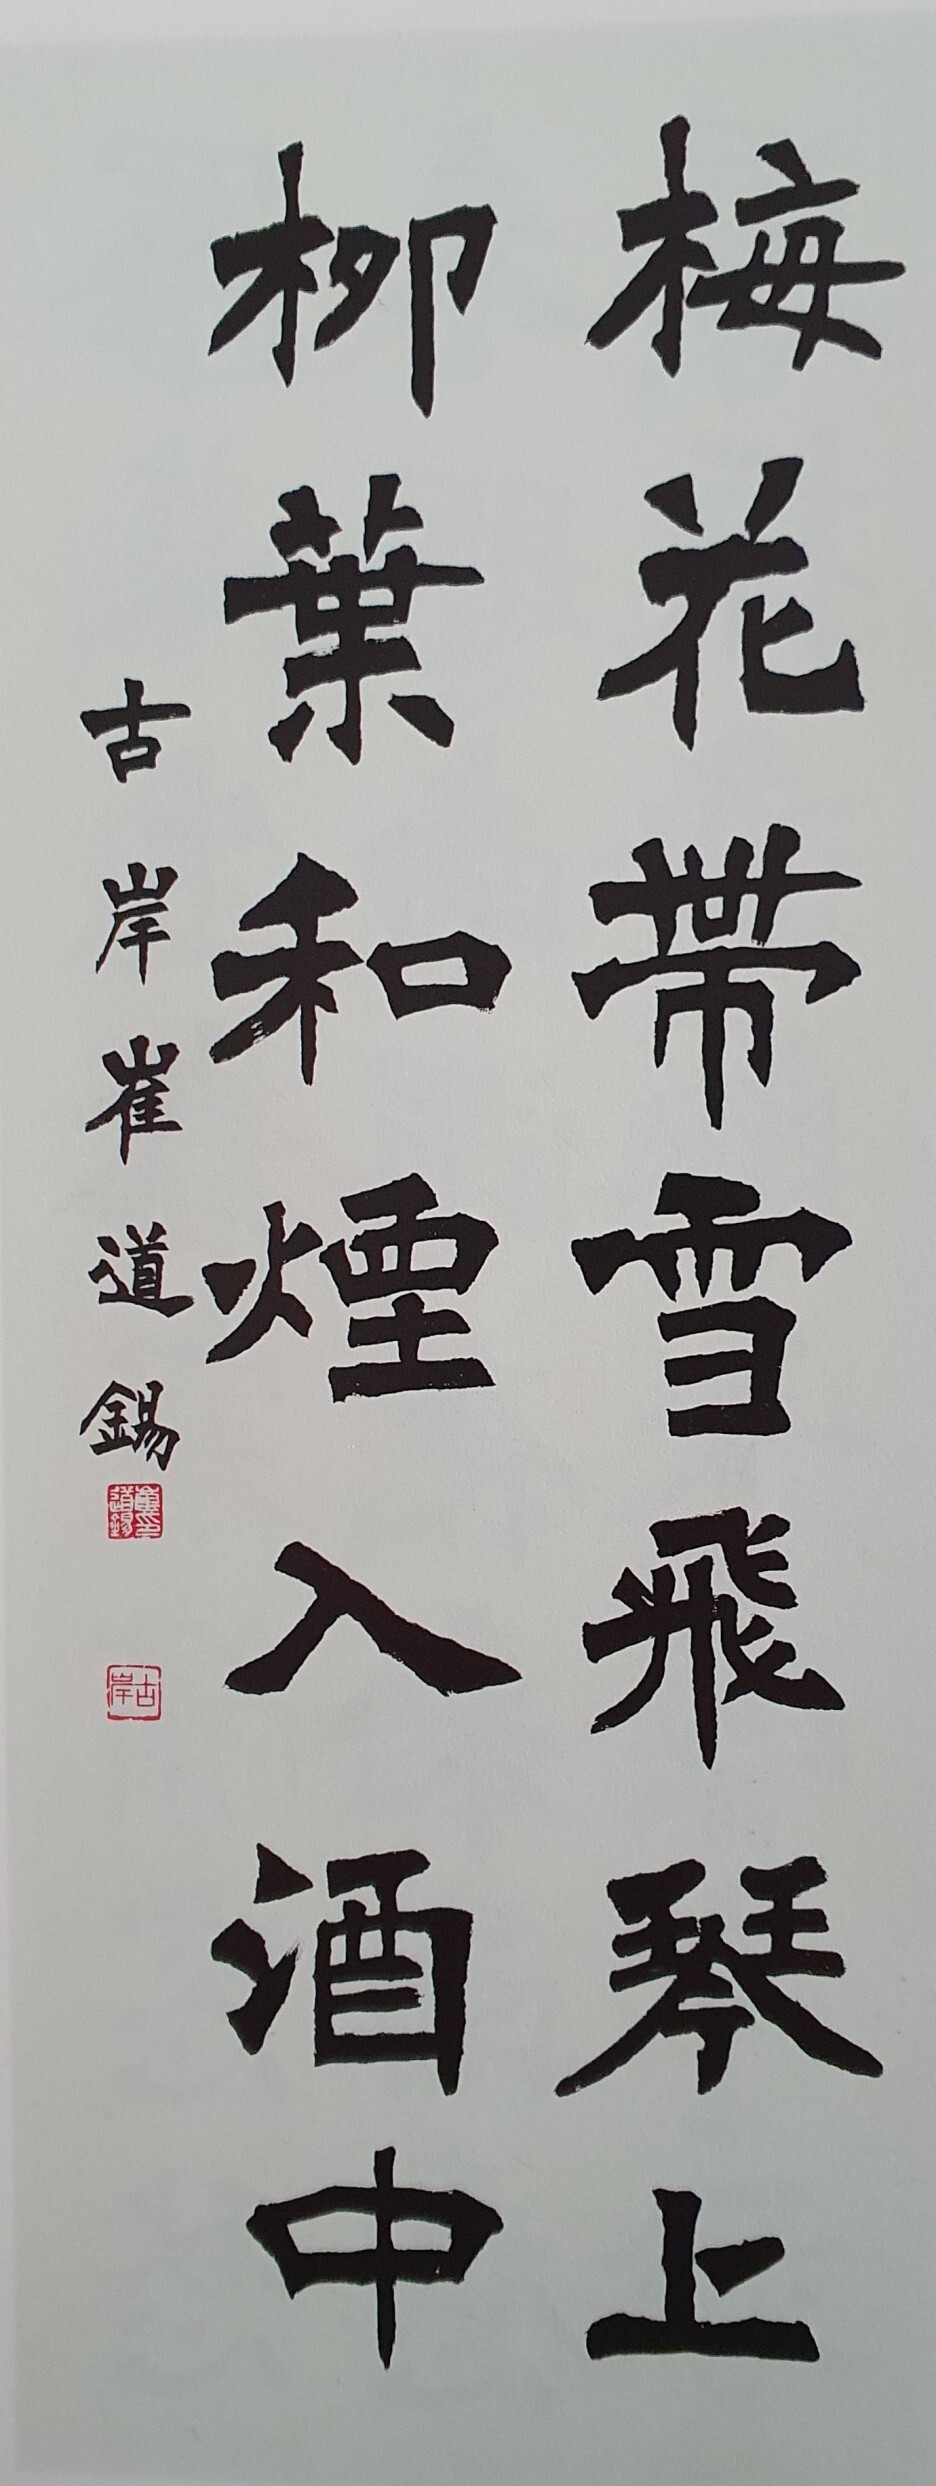 梅花帶雪飛琴上
柳葉和煙入酒中
古岸崔道錫
古岸